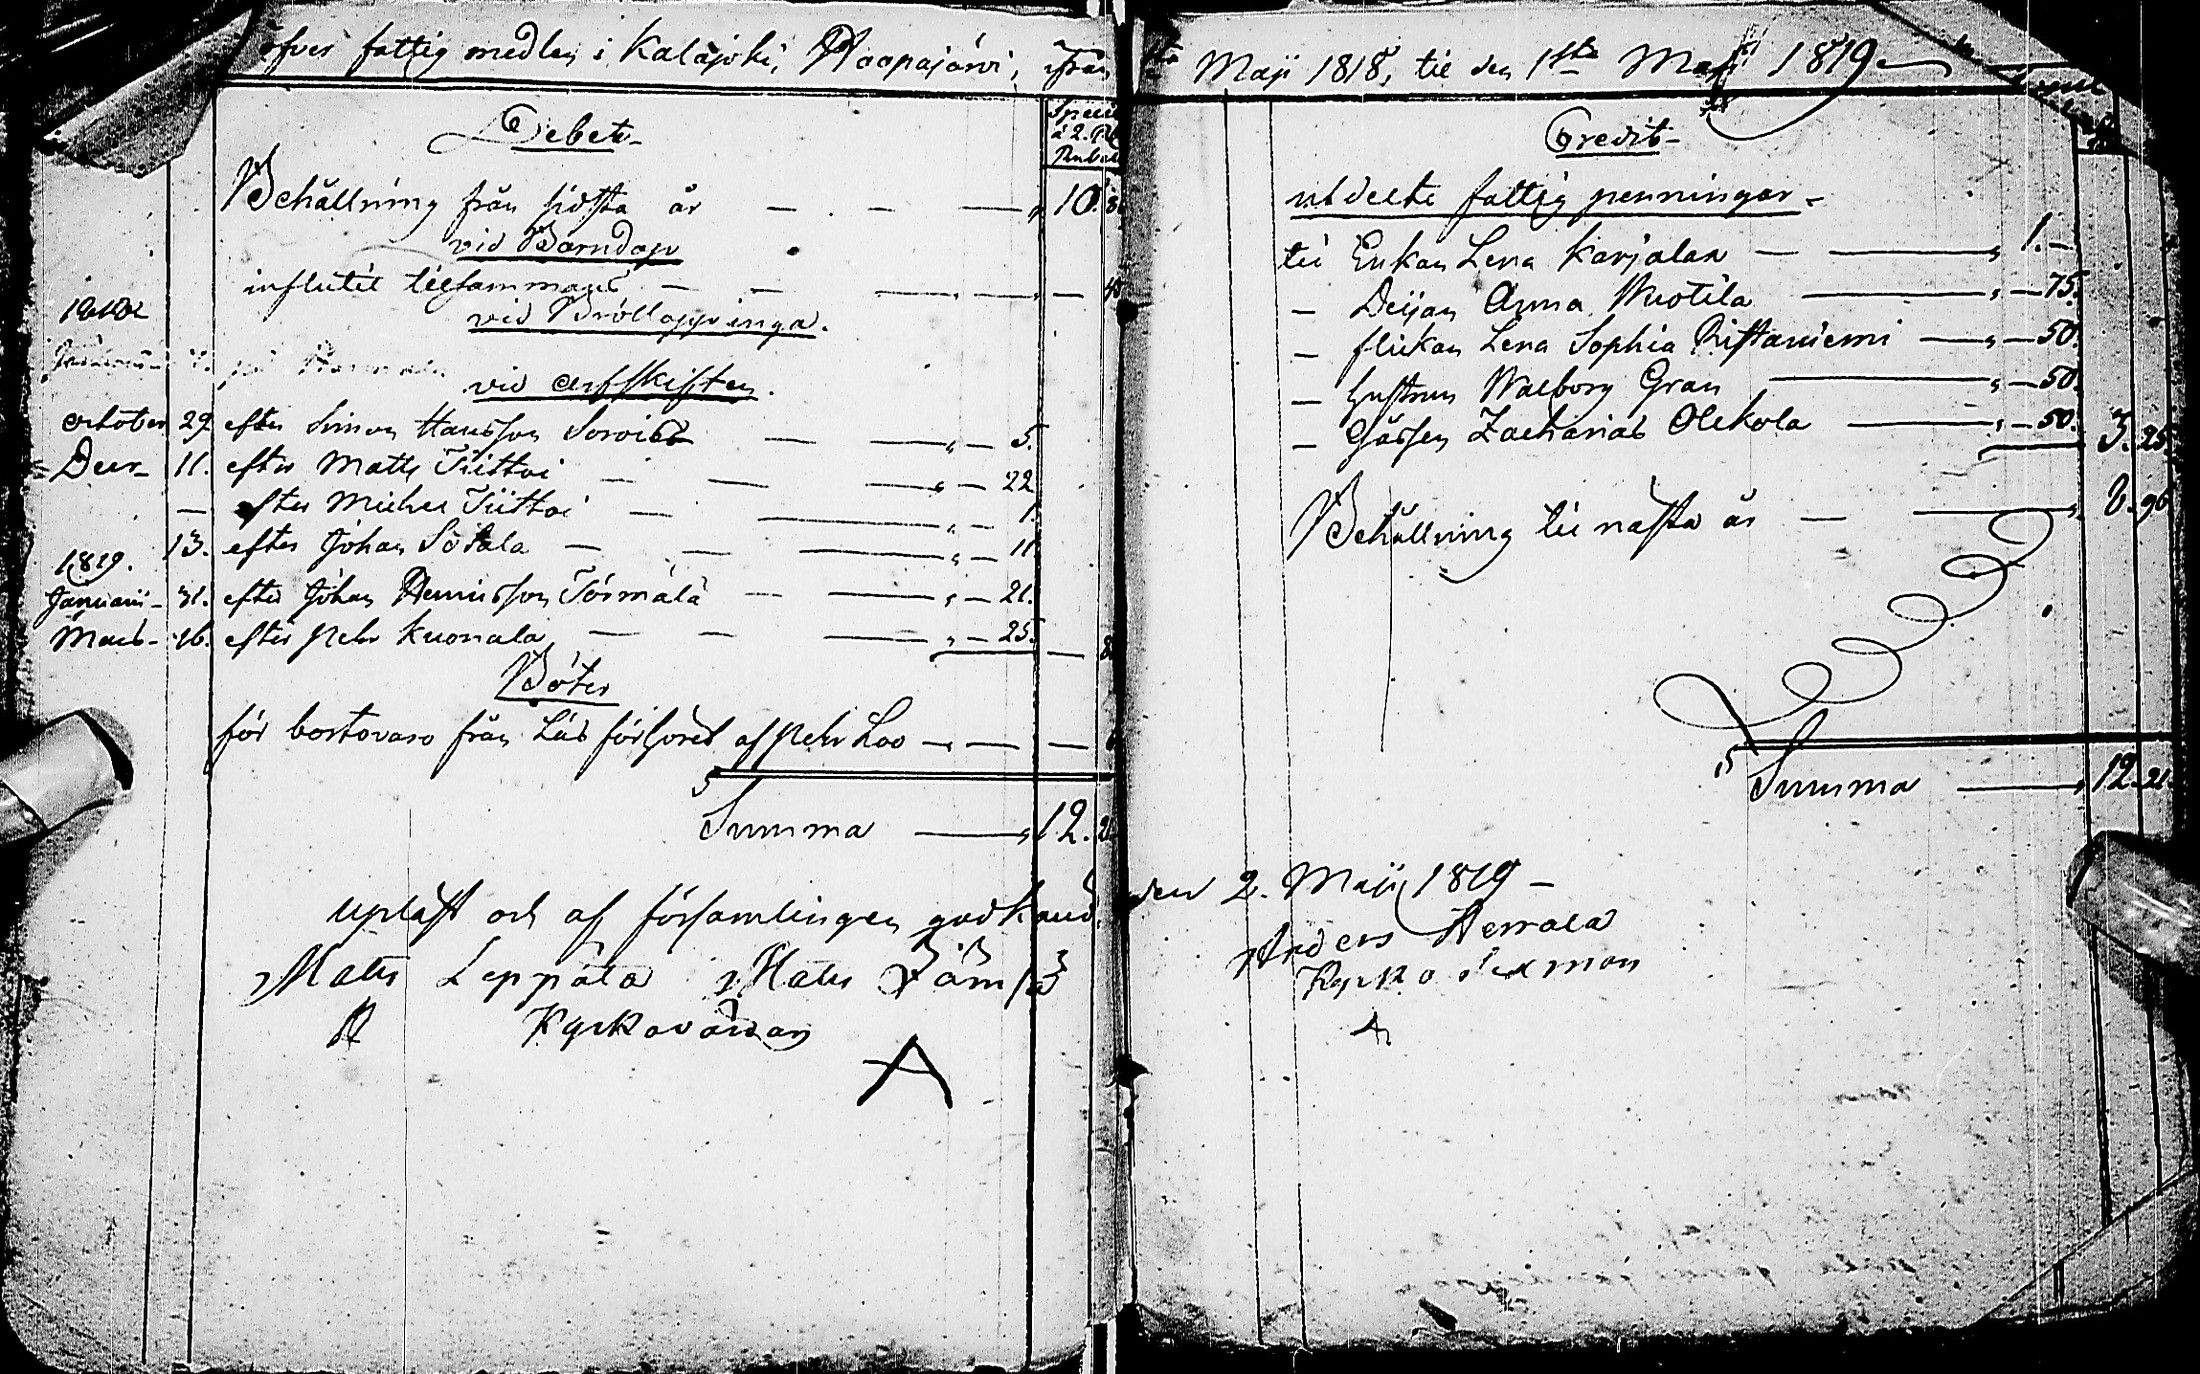 öfver fattig medlen i Kalajoki, Haapajärvi, ifrån 1sta Maji 1818, til den 1sta Maji 1819
Debet
Specie
à 2. Rb
Rubel
Behållning från sidsta år 10.
vid Barndop
influtit tilsammans
vid Bröllopp inga.
1818
vid Arfskiften.
October 29 efter Simon Hansson 5.
Decr 11. efter Matts Tiittoi 22
— efter Michel Tiittoi 1.
13. efter Johan Sotala 11
1819.
Januarii 31. efter Johan Hansson Törmälä 21.
Mart 16. efter Pehr Kuonala 25.
Böter
för bortovaro från Läsförhöret af Pehr Loo
Summa 12.
Credit
utdelte fattig penningar
til Enkan Lena Karjalan 1.
— Deijan Anna Wuotila 75.
— flickan Lena Sophia Ristaniemi 50.
— hustrun Walborg Gran 50.
— Gåssen Zacharias Olckola 50. 3. 25
Behållning til nästa år 8. 96
Summa 12. 21.
Upläst och af församlingen godkand, den 2. Maji 1819
Mats Leppälä Mats Jämsä Anders Herrala
Kyrkovärdar Kyrko sexman
A A